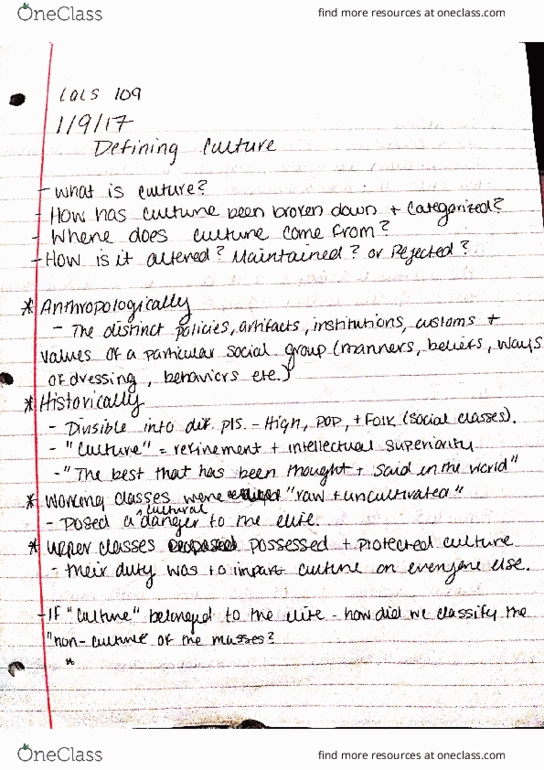 OneClass
find more resources at oneclass.com
LALS 109
1/9/17
Defining Culture
- What is culture?
- How has culture been broken down + categorized?
- Where does culture come from?
- How is it altered? Maintained? or Rejected?
* Anthropologically
- The distinct policies, artifacts, institutions, customs +
values of a particular social group (manners, beliefs, ways
of dressing, behaviors etc.)
* Historically
- Divisible into dif. pts. - High, POP, + Folk (social classes).
- "Culture" = refinement + intellectual superiority
- "The best that has been thought + said in the world"
* Working classes were "raw + uncultivated"
- posed a cultural danger to the elite.
* upper classes possessed + protected culture
- their duty was to impart culture on everyone else.
- If "culture" belonged to the elite - how did we classify the
"non-culture of the masses?
*
OneClass
find more resources at oneclass.com